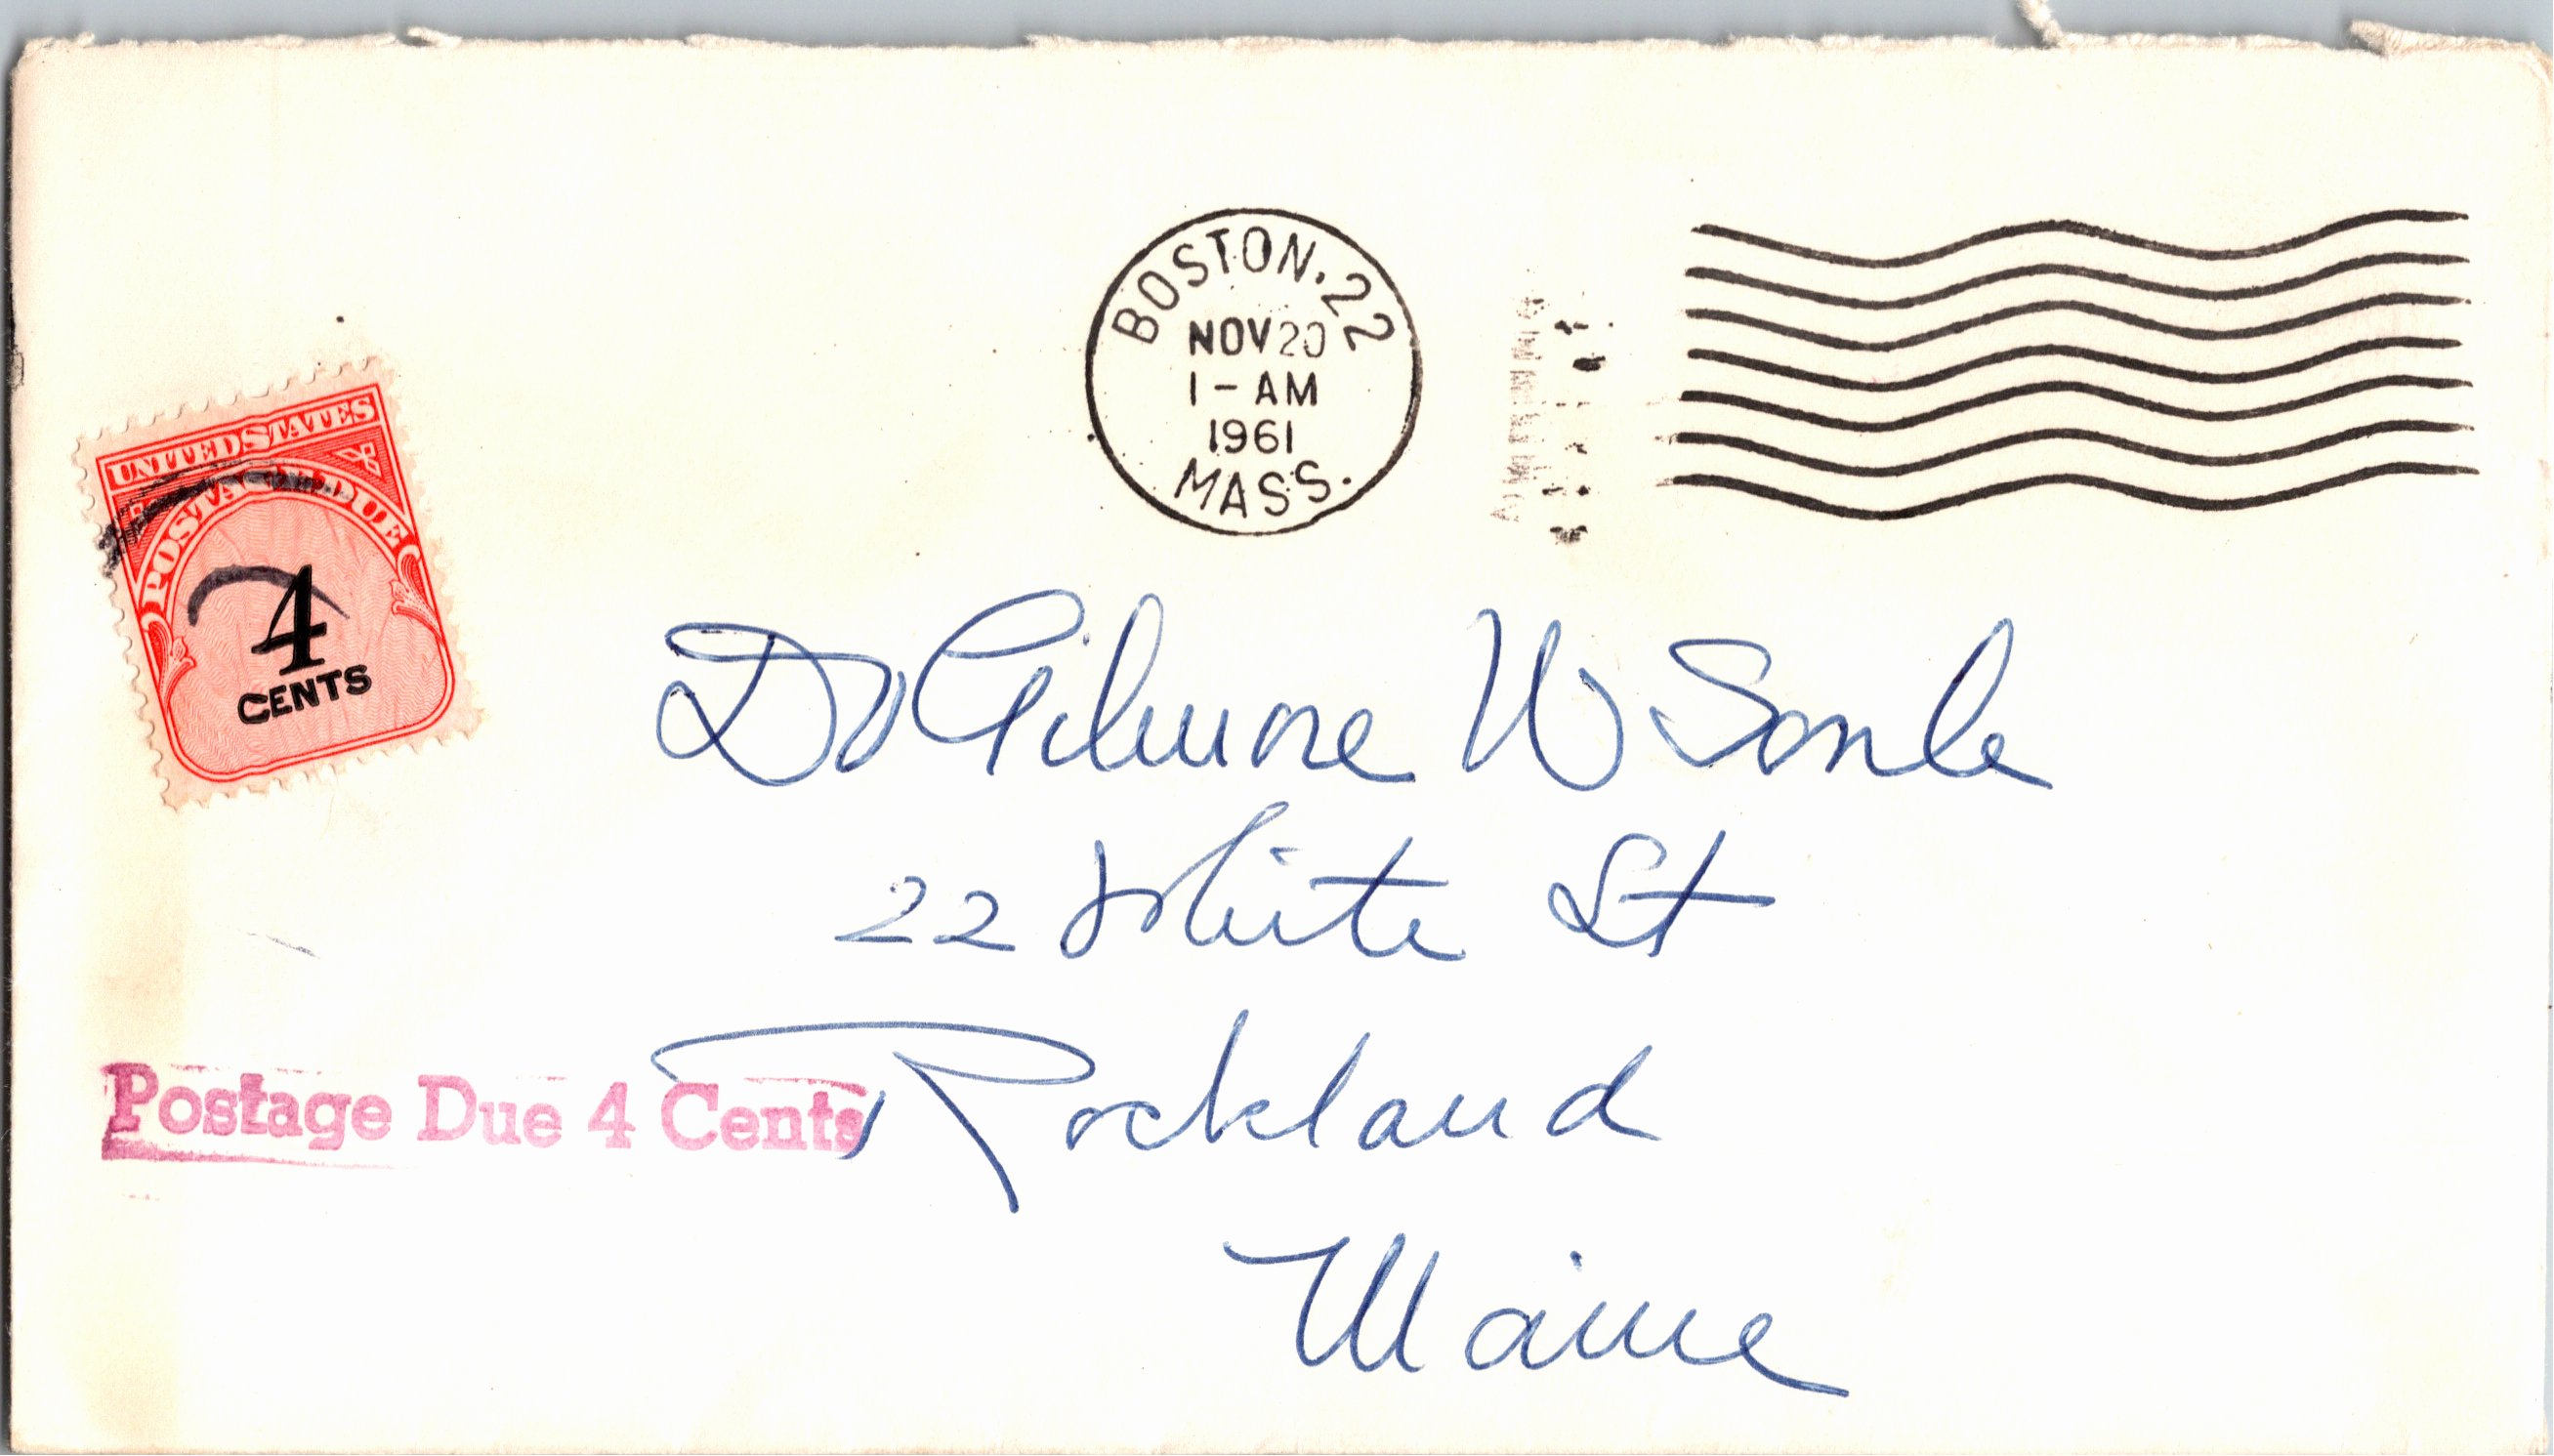 BOSTON. 22
NOV 20
1 - AM
1961
MASS.
UNITED STATES
POSTAGE DUE
4
CENTS
Dr Gilmore W Soule
22 White St
Rockland
Maine
Postage Due 4 Cents